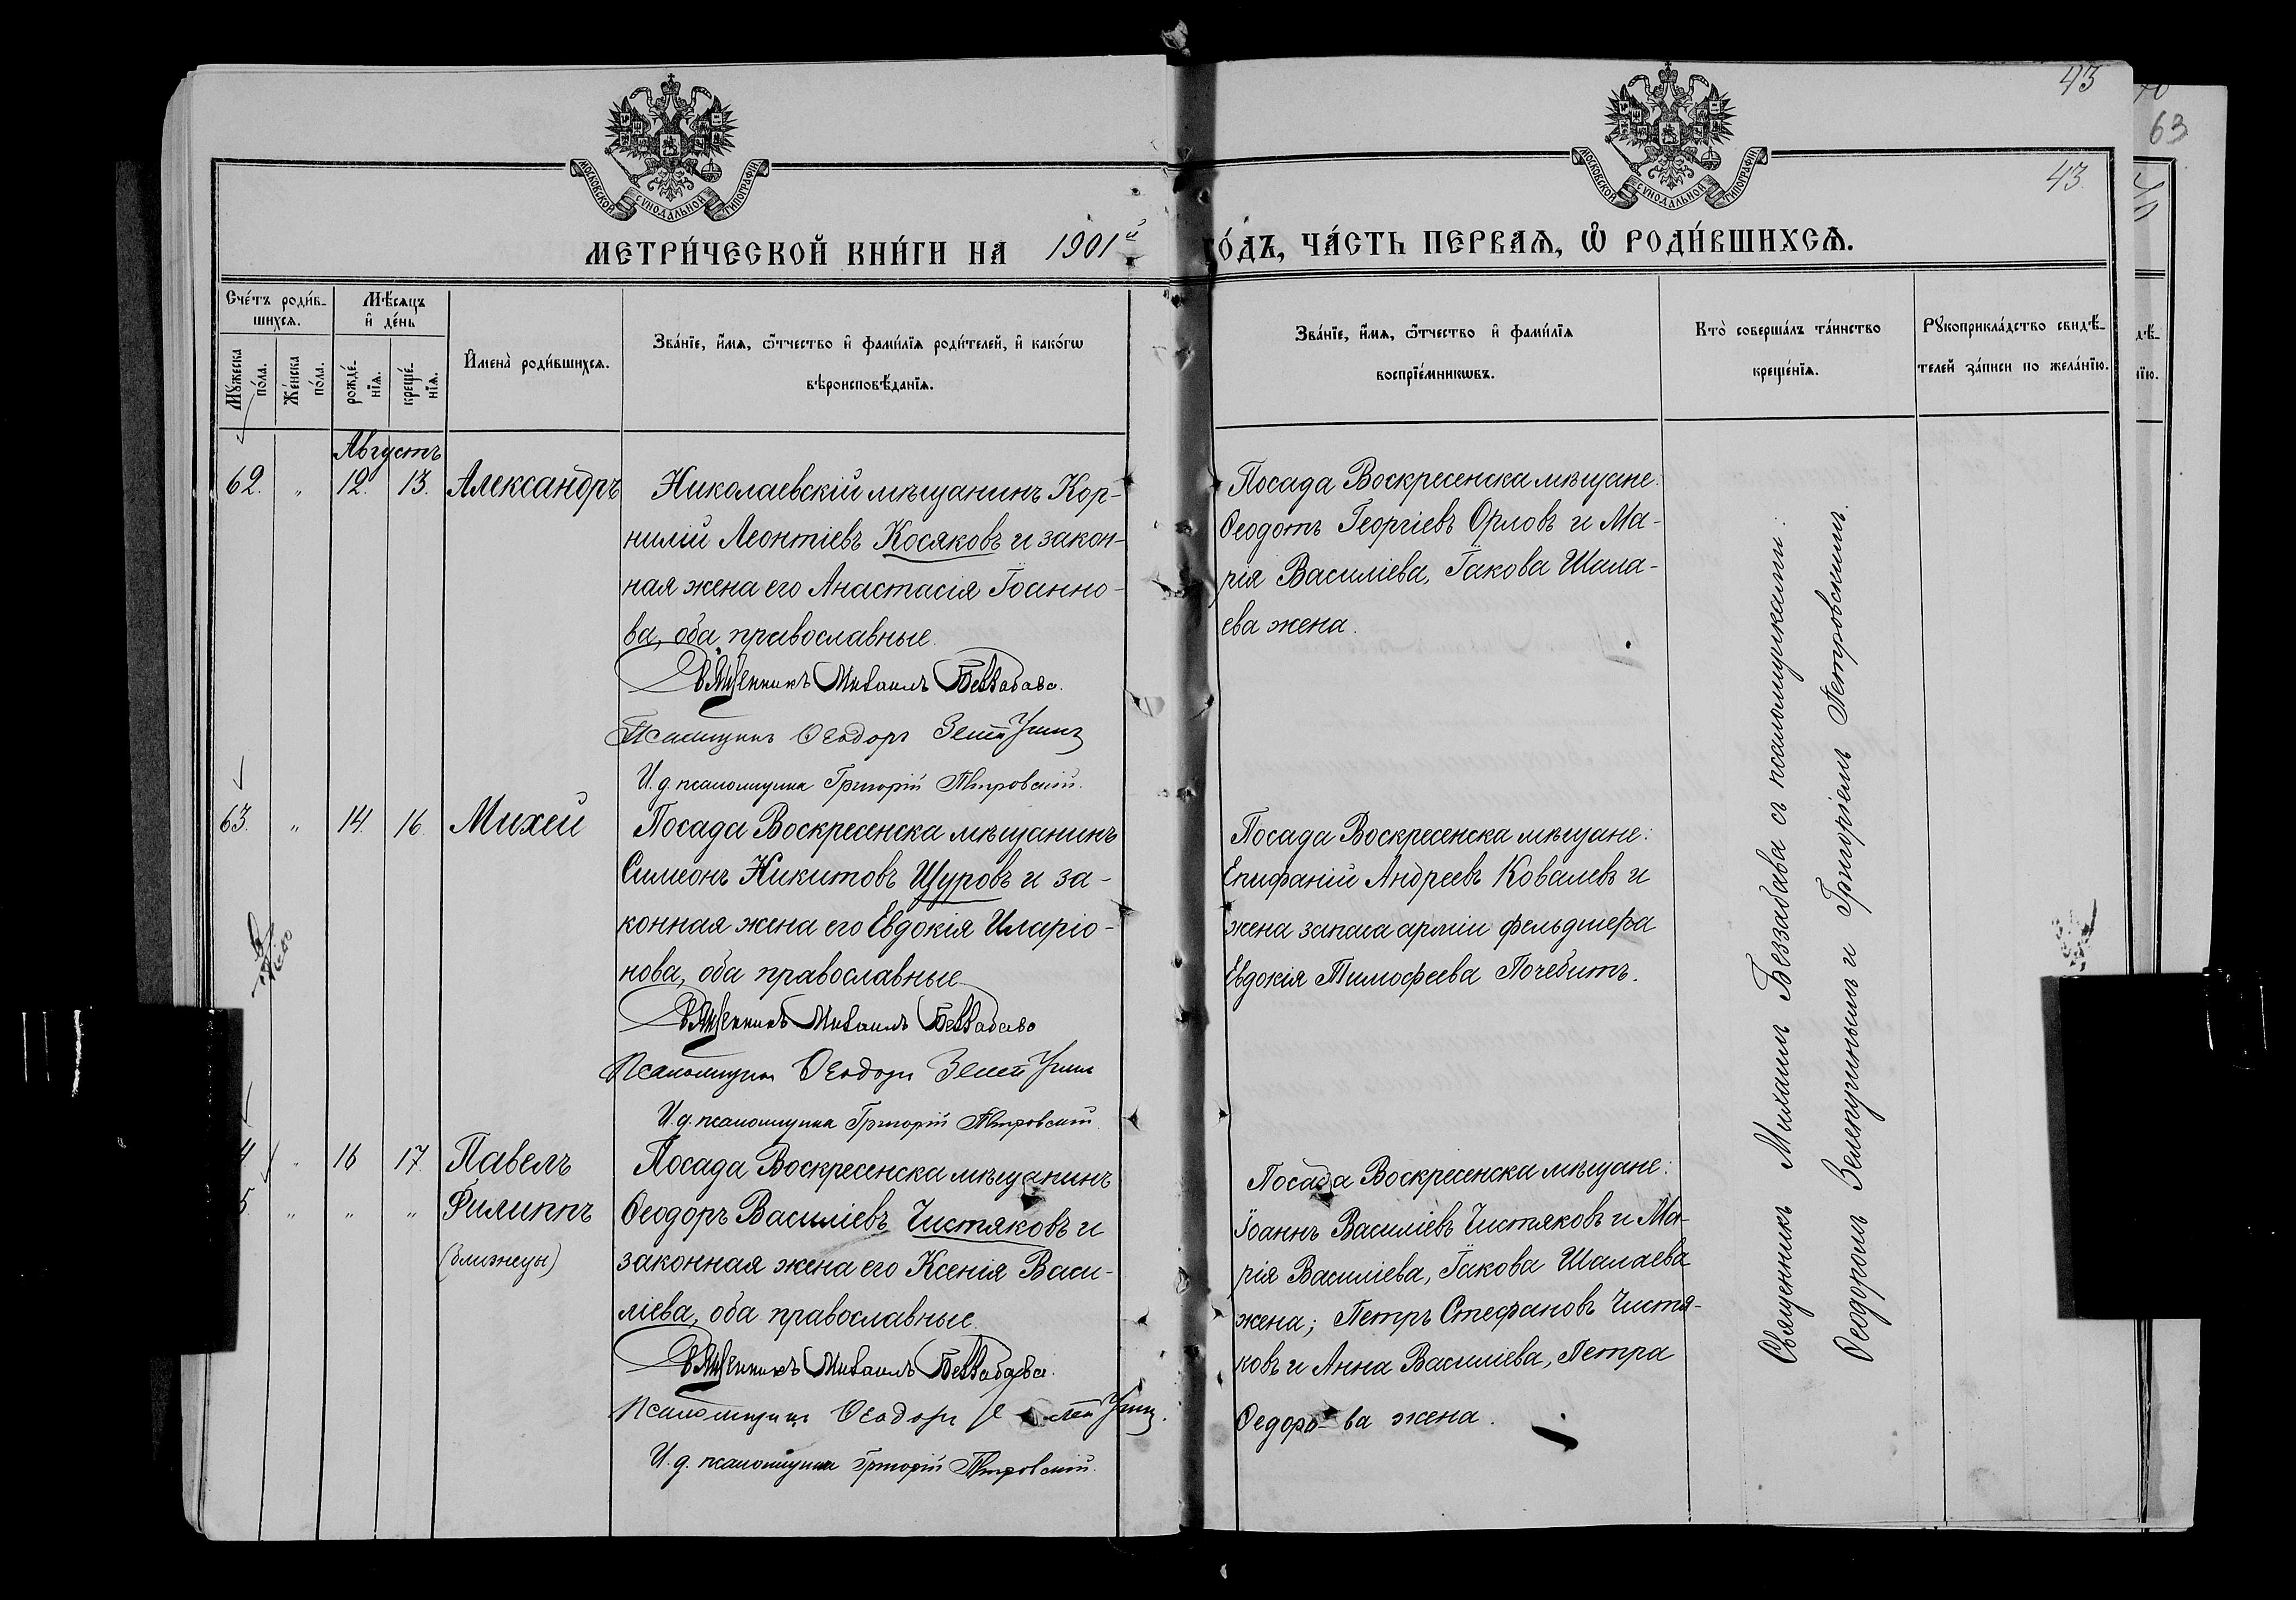 43
63
43.
МОСКОВСКОЙ СѴНОДАЛЬНОЙ ТИПОГРАФІИ
МОСКОВСКОЙ СѴНОДАЛЬНОЙ ТИПОГРАФІИ
МЕТРИ́ЧЕСКОЙ КНИ́ГИ НА 1901й ГО́ДЪ, ЧА́СТЬ ПЕРВАѦ, Ѽ РОДИ́ВШИХСѦ.
Сче́тъ роди́в-
шихсѧ.
Мꙋ́жеска по́ла.
Же́нска по́ла.
Мѣ́сѧцъ
и҆ де́нь
рожде́-
нїѧ.
креще́-
нїѧ.
И҆мена̀ роди́вшихсѧ.
Зва́нїе, и҆́мѧ, ѻ҆́тчество и҆ фами́лїѧ роди́телей, и҆ како́гѡ
вѣроисповѣ́данїѧ.
Зва́нїе, и҆́мѧ, ѻ҆́тчество и҆ фами́лїѧ
воспрїе́мникѡвъ.
Кто̀ соверша́лъ та́инство
креще́нїѧ.
Рꙋкоприкла́дство свидѣ́-
телей за́писи по жела́нїю.
Августъ
62. " 12. 13. Александръ
Николаевскій мѣщанинъ Кор-
нилій Леонтіевъ Косяковъ и закон-
ная жена его Анастасія Іоанно-
ва, оба православные.
Священникъ Михаилъ Беззабава.
Псаломщикъ Ѳеодоръ
И. д. псаломщика Григорій Петровскій.
Посада Воскресенска мѣщане:
Ѳеодотъ Георгіевъ Орловъ и Ма-
рія Василіева, Іакова Шала-
ева жена.
63. " 14. 16. Михей
Посада Воскресенска мѣщанинъ
Симеонъ Никитовъ Щуровъ и за-
конная жена его Евдокія Иларіо-
нова, оба православные.
Священникъ Михаилъ Беззабава
Псаломщикъ Ѳеодоръ
И. д. псаломщика Григорій Петровскій.
Посада Воскресенска мѣщане:
Епифаній Андреевъ Ковалевъ и
жена запаса арміи фельдшера
Евдокія Тимофеева Почебитъ.
4 " 16 17. Павелъ
5. " " " Филиппъ
(близнецы)
Посада Воскресенска мѣщанинъ
Ѳеодоръ Василіевъ Чистяковъ и
законная жена его Ксенія Васи-
ліева, оба православные.
Священникъ Михаилъ Беззабава.
Псаломщикъ Ѳеодоръ
И. д. псаломщика Григорій Петровскій.
Посада Воскресенска мѣщане:
Іоаннъ Василіевъ Чистяковъ и Ма-
рія Василіева, Іакова Шалаева
жена; Петръ Стефановъ Чистя-
ковъ и Анна Василіева, Петра
Ѳедорова жена.
Священникъ Михаилъ Беззабава съ псаломщиками:
Ѳеодоромъ и Григоріемъ Петровскимъ.